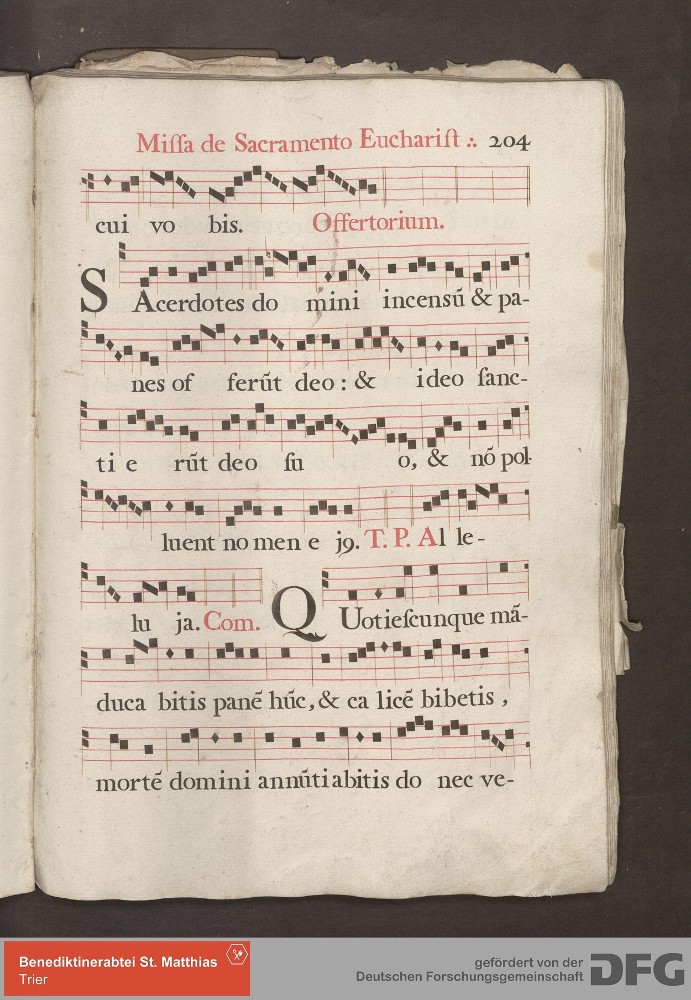 Miſſa de Sacramento Euchariſt ∴ 204
cui vo bis. Offertorium.
SAcerdotes do mini incensũ & pa-
nes of ferũt deo : & ideo ſanc-
ti e rũt deo ſu o, & nõ pol-
luent no men e jꝯ. T. P. Al le-
lu ja. Com. QUotieſcunque mã-
duca bitis panẽ hũc, & ca licẽ bibetis ,
mortẽ domini annũtiabitis do nec ve-
Benediktinerabtei St. Matthias
Trier
gefördert von der
Deutschen Forschungsgemeinschaft
DFG